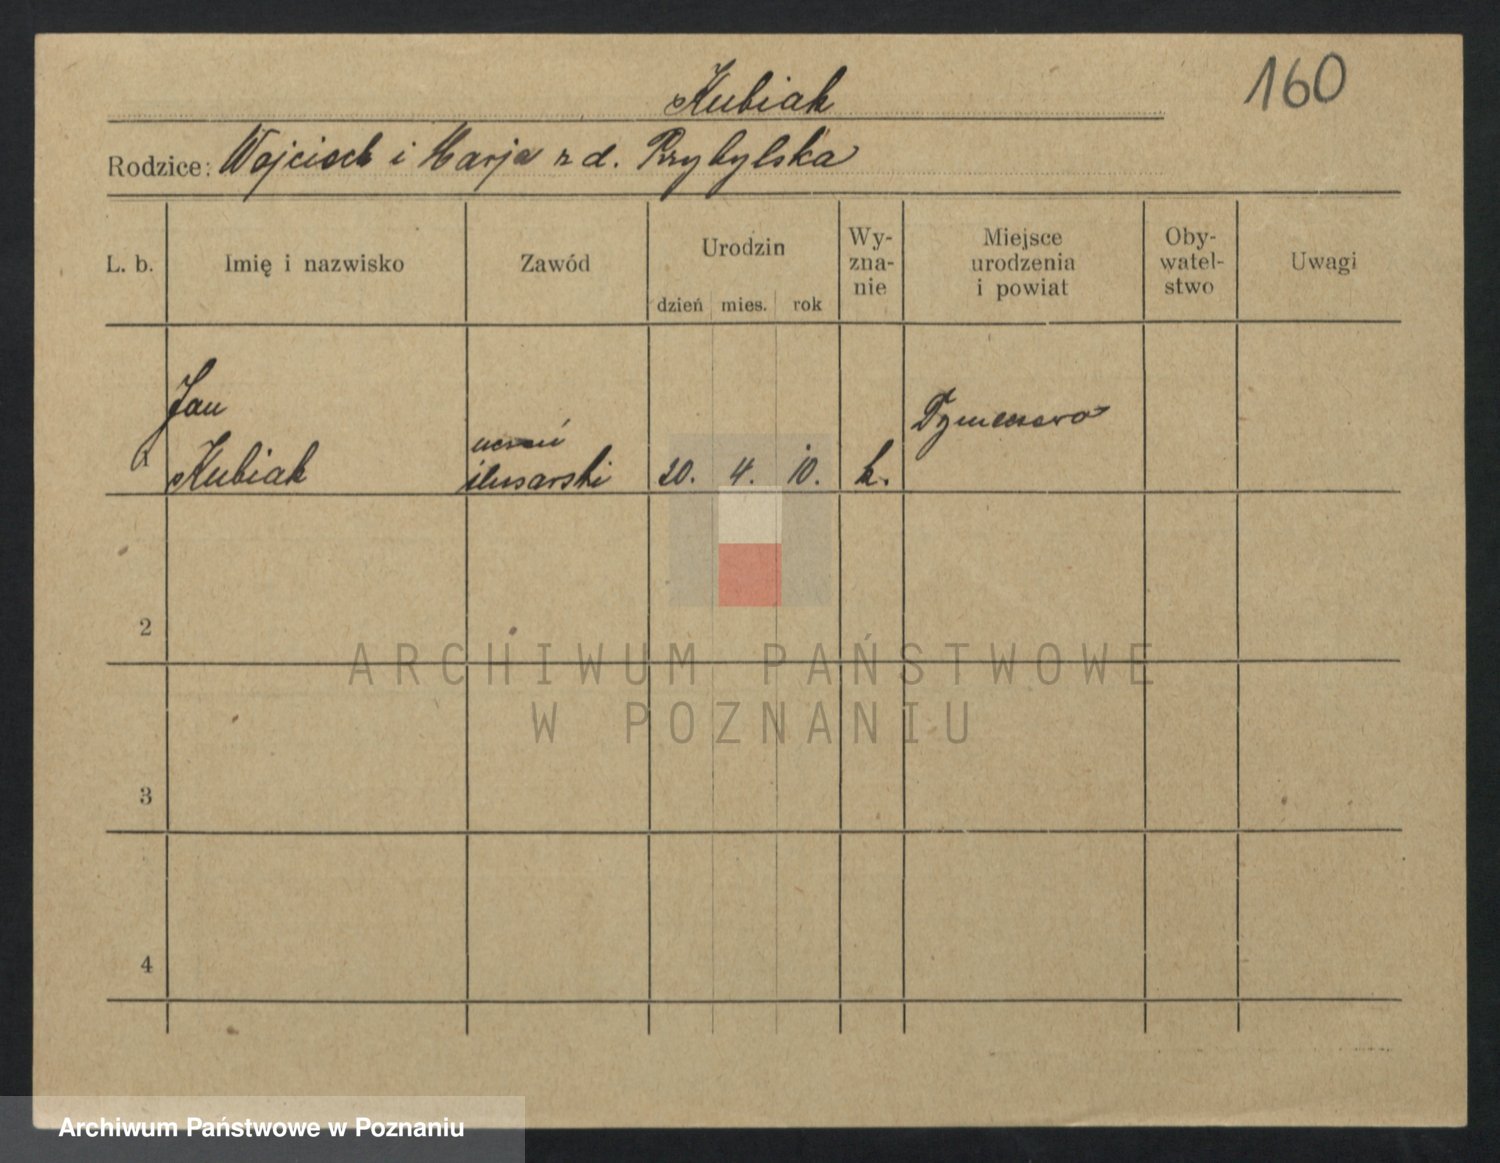 160
Kubiak
Rodzice: Wojciech i Marja z d. Przybylska
L. b.
Imię i nazwisko
Zawód
Urodzin
dzień mies. rok
Wy-
zna-
nie
Miejsce
urodzenia
i powiat
Oby-
watel-
stwo
Uwagi
1
Jan
Kubiak
uczeń
ślusarski
20. 4. 10.
k.
2
3
4
ARCHIWUM PAŃSTWOWE
W POZNANIU
Archiwum Państwowe w Poznaniu